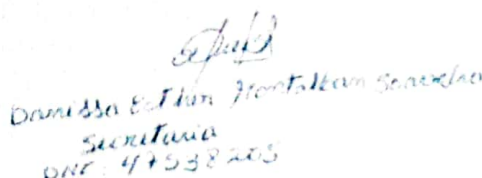 Danissa Esther Montalban
Secretaria
DNI: 47538205